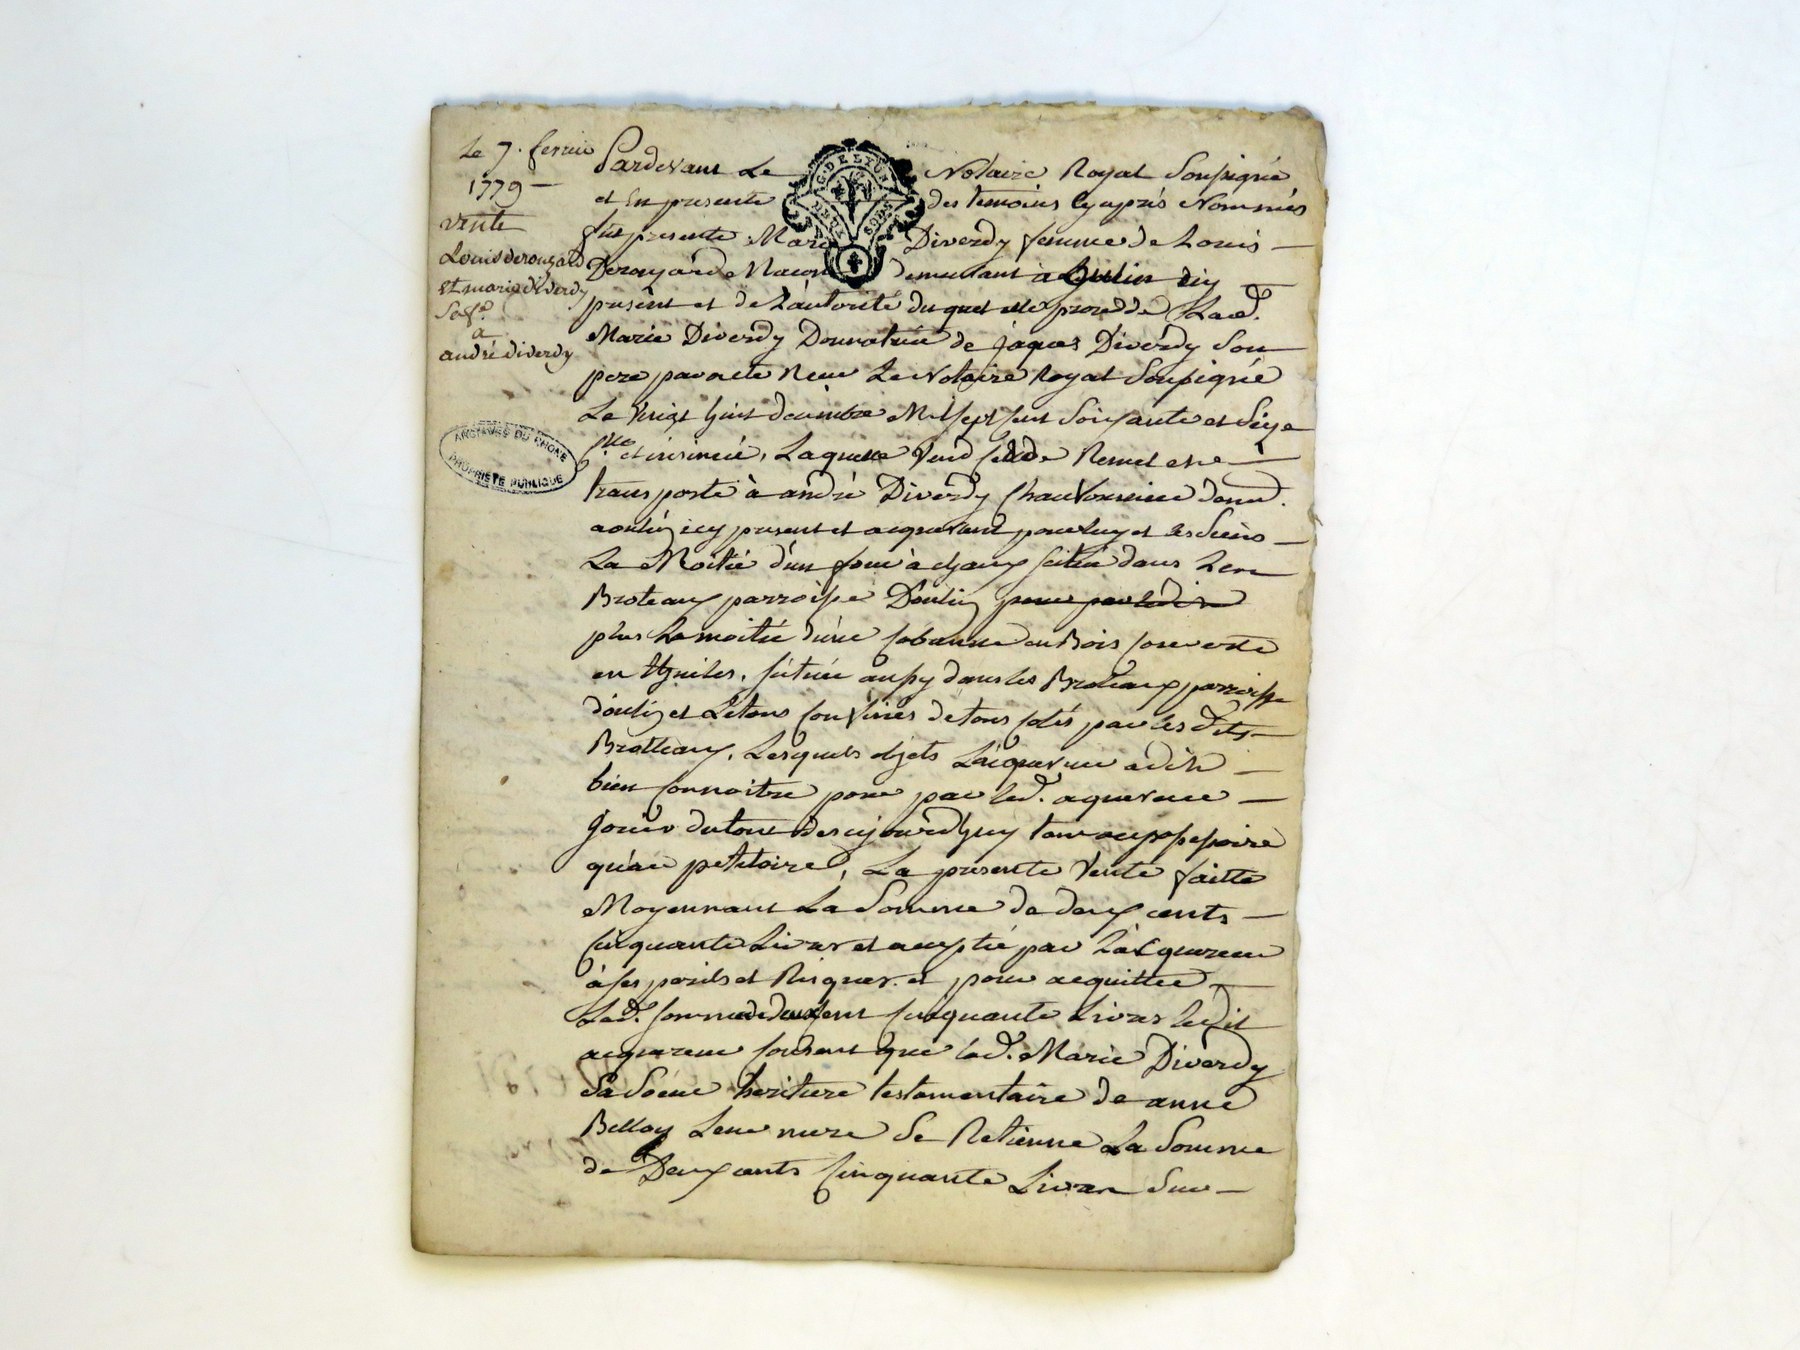 Le 7. fevrier
1779 –
vente
Louis derouzard
et marie diverdy
Sa fe.
a
andré diverdy
ARCHIVES DU RHONE
PROPRIÉTÉ PUBLIQUE
G. DE LYON
DEUX SOLS
Pardevant Le Notaire Royal Soussigné
et En presente des temoins cy après Nommés
fut presente Marie Diverdy femme de Louis –
Macon demeurant à icy
present et de L'autorité duquel elle procede Lad.
Marie Diverdy Donnatrice de jaques Diverdy Son
pere par acte Reçu Le Notaire Royal Soussigné
Le vingt huit decembre Mil sept cent Soixante et Seize
Laquelle vend cedde Remet et –
transporte à andré Diverdy demt.
aoulin icy present et acquerant pour luy et les Siens –
La Moitié d'un four à chaux scitué dans Les
Broteaux parroisse Doulin
plus La moitié d'une cabanne en Bois couverte
en thuiles, scituée aussy dans les Broteaux parroisse
d'oulin et Le tout confinés de tous cotés par les dits –
Brotteaux, Lesquels objets L'acquereur a dit –
bien connoitre pour par led. aquereur –
jouir du tout des aujourdhuy tant au possessoire
qu'au petitoire, La presente Vente faitte
Moyennant La Somme de deux cents –
Cinquante Livres et accepté par L'acquereur
à ses perils et Risques. et pour acquitter –
Lad. somme de deux cent cinquante Livres ledit
acquereur consent que lad. Marie Diverdy
Sa Soeur heritiere testamentaire de anne
Bellay Leur mere Se Retienne La Somme
de Deux cents Cinquante Livres Sur –